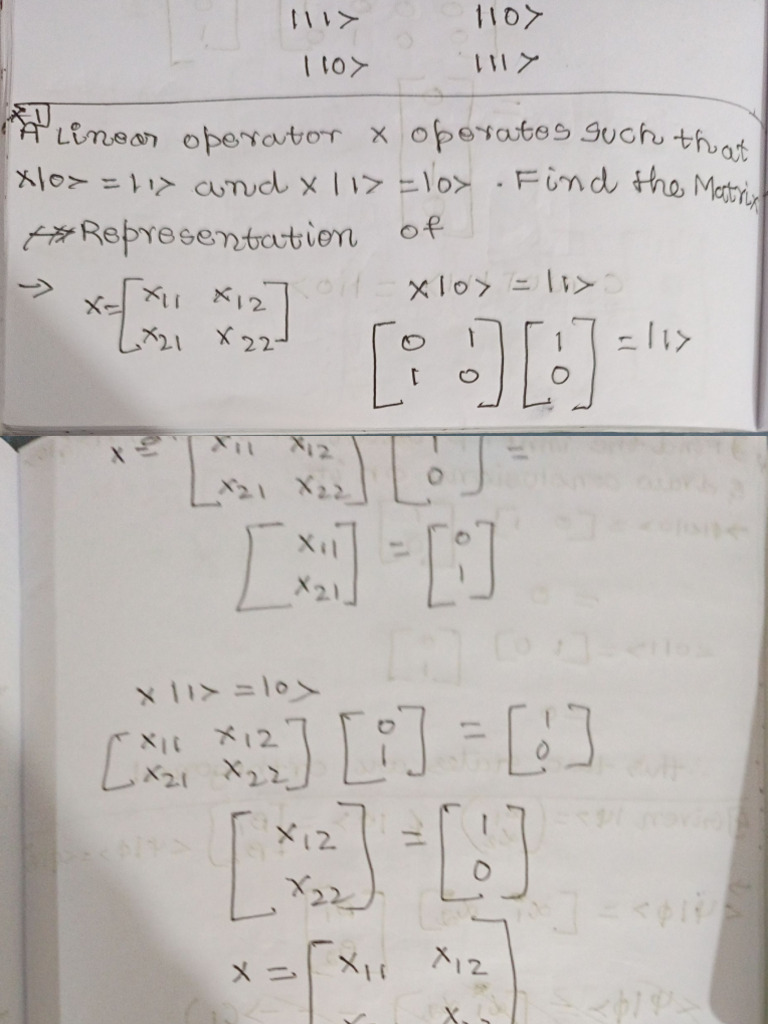 |11> |10>
|10> |11>
A Linear operator x operates such that
x|0> = |1> and x|1> = |0> . Find the Matrix
Representation of
→ x = [x11 x12 x|0> = |1>
x21 x22] [0 1 1 0] [1 0] = |1>
x = [x11 x12 x21 x22] [1 0] =
[x11 x21] = [0 1]
x|1> = |0>
[x11 x12 x21 x22] [0 1] = [1 0]
[x12 x22] = [1 0]
x = [x11 x12